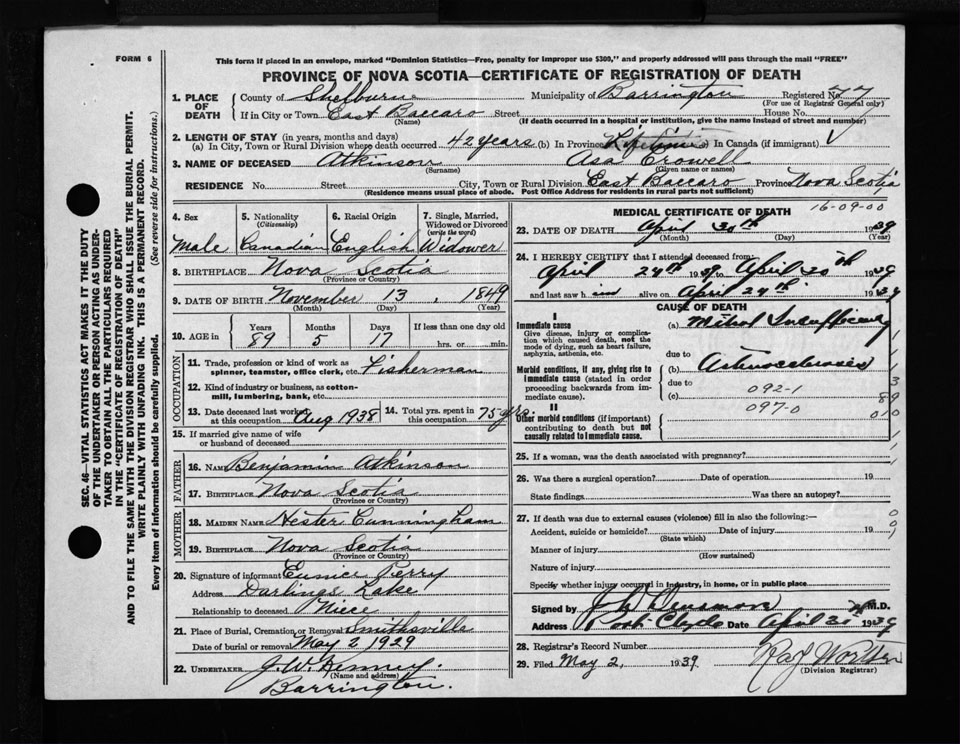 FORM 6
This form if placed in an envelope, marked "Dominion Statistics—Free, penalty for improper use $300," and properly addressed will pass through the mail "FREE"
PROVINCE OF NOVA SCOTIA—CERTIFICATE OF REGISTRATION OF DEATH
1. PLACE OF DEATH County of Shelburne Municipality of Barrington Registered No. 77
(For use of Registrar General only)
If in City or Town East Baccaro Street House No.
(Name) (If death occurred in a hospital or institution, give the name instead of street and number)
2. LENGTH OF STAY (in years, months and days)
(a) In City, Town or Rural Division where death occurred 42 years (b) In Province Lifetime (c) In Canada (if immigrant)
3. NAME OF DECEASED Atkinson Asa Crowell
(Surname) (Given name or names)
RESIDENCE No. Street City, Town or Rural Division East Baccaro Province Nova Scotia
(Residence means usual place of abode. Post Office Address for residents in rural parts not sufficient)
4. Sex 5. Nationality (Citizenship) 6. Racial Origin 7. Single, Married, Widowed or Divorced (write the word)
Male Canadian English Widower
8. BIRTHPLACE Nova Scotia
(Province or Country)
9. DATE OF BIRTH November 13, 1849
(Month) (Day) (Year)
10. AGE in Years Months Days If less than one day old
89 5 17 hrs. or min.
OCCUPATION
11. Trade, profession or kind of work as spinner, teamster, office clerk, etc. Fisherman
12. Kind of industry or business, as cotton-mill, lumbering, bank, etc.
13. Date deceased last worked at this occupation Aug 1938 14. Total yrs. spent in this occupation 75 yrs.
15. If married give name of wife or husband of deceased
FATHER
16. NAME Benjamin Atkinson
17. BIRTHPLACE Nova Scotia
(Province or Country)
MOTHER
18. MAIDEN NAME Hester Cunningham
19. BIRTHPLACE Nova Scotia
(Province or Country)
20. Signature of informant Eunice Perry
Address Darlings Lake
Relationship to deceased Niece
21. Place of Burial, Cremation or Removal Smithsville
Date of burial or removal May 2 1929
22. UNDERTAKER J. W. Kenney.
(Name and address)
Barrington.
MEDICAL CERTIFICATE OF DEATH
16-09-00
23. DATE OF DEATH April 30th 1939
(Month) (Day) (Year)
24. I HEREBY CERTIFY that I attended deceased from:
April 24th 1939 to April 30th 1939
and last saw him alive on April 29th 1939
CAUSE OF DEATH
I
Immediate cause
Give disease, injury or complication which caused death, not the mode of dying, such as heart failure, asphyxia, asthenia, etc.
(a) Mitral Insufficiency
due to
Morbid conditions, if any, giving rise to immediate cause (stated in order proceeding backwards from immediate cause).
(b) Arteriosclerosis
due to 092-1
(c)
II
097-0
Other morbid conditions (if important) contributing to death but not causally related to immediate cause.
25. If a woman, was the death associated with pregnancy?
26. Was there a surgical operation? Date of operation 19
State findings Was there an autopsy?
27. If death was due to external causes (violence) fill in also the following:—
Accident, suicide or homicide? Date of injury 19
(State which)
Manner of injury
(How sustained)
Nature of injury
Specify whether injury occurred in industry, in home, or in public place
Signed by M.D.
Address Port Clyde Date April 30 1939
28. Registrar's Record Number
29. Filed May 2, 1939 Ray
(Division Registrar)
SEC. 46—VITAL STATISTICS ACT MAKES IT THE DUTY
OF THE UNDERTAKER OR PERSON ACTING AS UNDERTAKER TO OBTAIN ALL THE PARTICULARS REQUIRED
IN THE "CERTIFICATE OF REGISTRATION OF DEATH"
AND TO FILE THE SAME WITH THE DIVISION REGISTRAR WHO SHALL ISSUE THE BURIAL PERMIT.
WRITE PLAINLY WITH UNFADING INK. THIS IS A PERMANENT RECORD.
Every item of information should be carefully supplied. (See reverse side for instructions.)